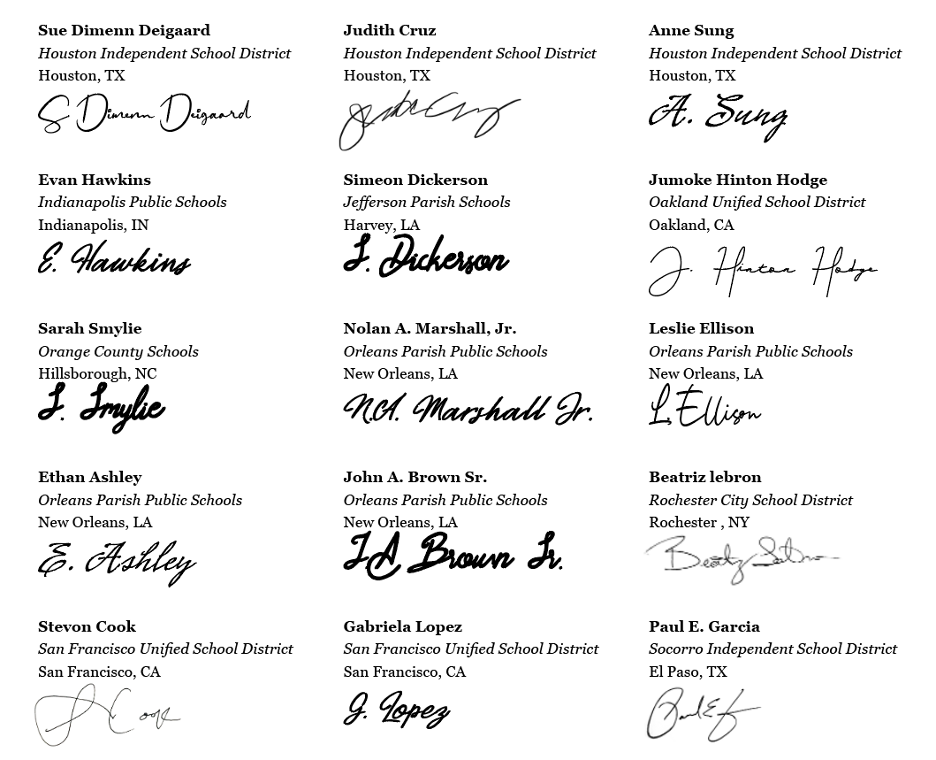 Sue Dimenn Deigaard
Houston Independent School District
Houston, TX
S Dimenn Deigaard
Judith Cruz
Houston Independent School District
Houston, TX
Judith Cruz
Anne Sung
Houston Independent School District
Houston, TX
A. Sung
Evan Hawkins
Indianapolis Public Schools
Indianapolis, IN
E. Hawkins
Simeon Dickerson
Jefferson Parish Schools
Harvey, LA
S. Dickerson
Jumoke Hinton Hodge
Oakland Unified School District
Oakland, CA
J. Hinton Hodge
Sarah Smylie
Orange County Schools
Hillsborough, NC
S. Smylie
Nolan A. Marshall, Jr.
Orleans Parish Public Schools
New Orleans, LA
N.A. Marshall Jr.
Leslie Ellison
Orleans Parish Public Schools
New Orleans, LA
L. Ellison
Ethan Ashley
Orleans Parish Public Schools
New Orleans, LA
E. Ashley
John A. Brown Sr.
Orleans Parish Public Schools
New Orleans, LA
J.A Brown Sr.
Beatriz lebron
Rochester City School District
Rochester , NY
Stevon Cook
San Francisco Unified School District
San Francisco, CA
S Cook
Gabriela Lopez
San Francisco Unified School District
San Francisco, CA
G. Lopez
Paul E. Garcia
Socorro Independent School District
El Paso, TX